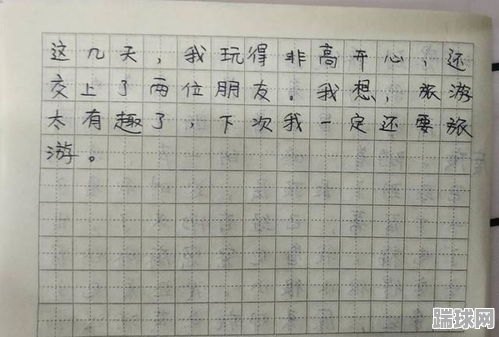 这几天，我玩得非高开心，还
交上了两位朋友。我想，旅游
太有趣了，下次我一定还要旅
游。
踹球网